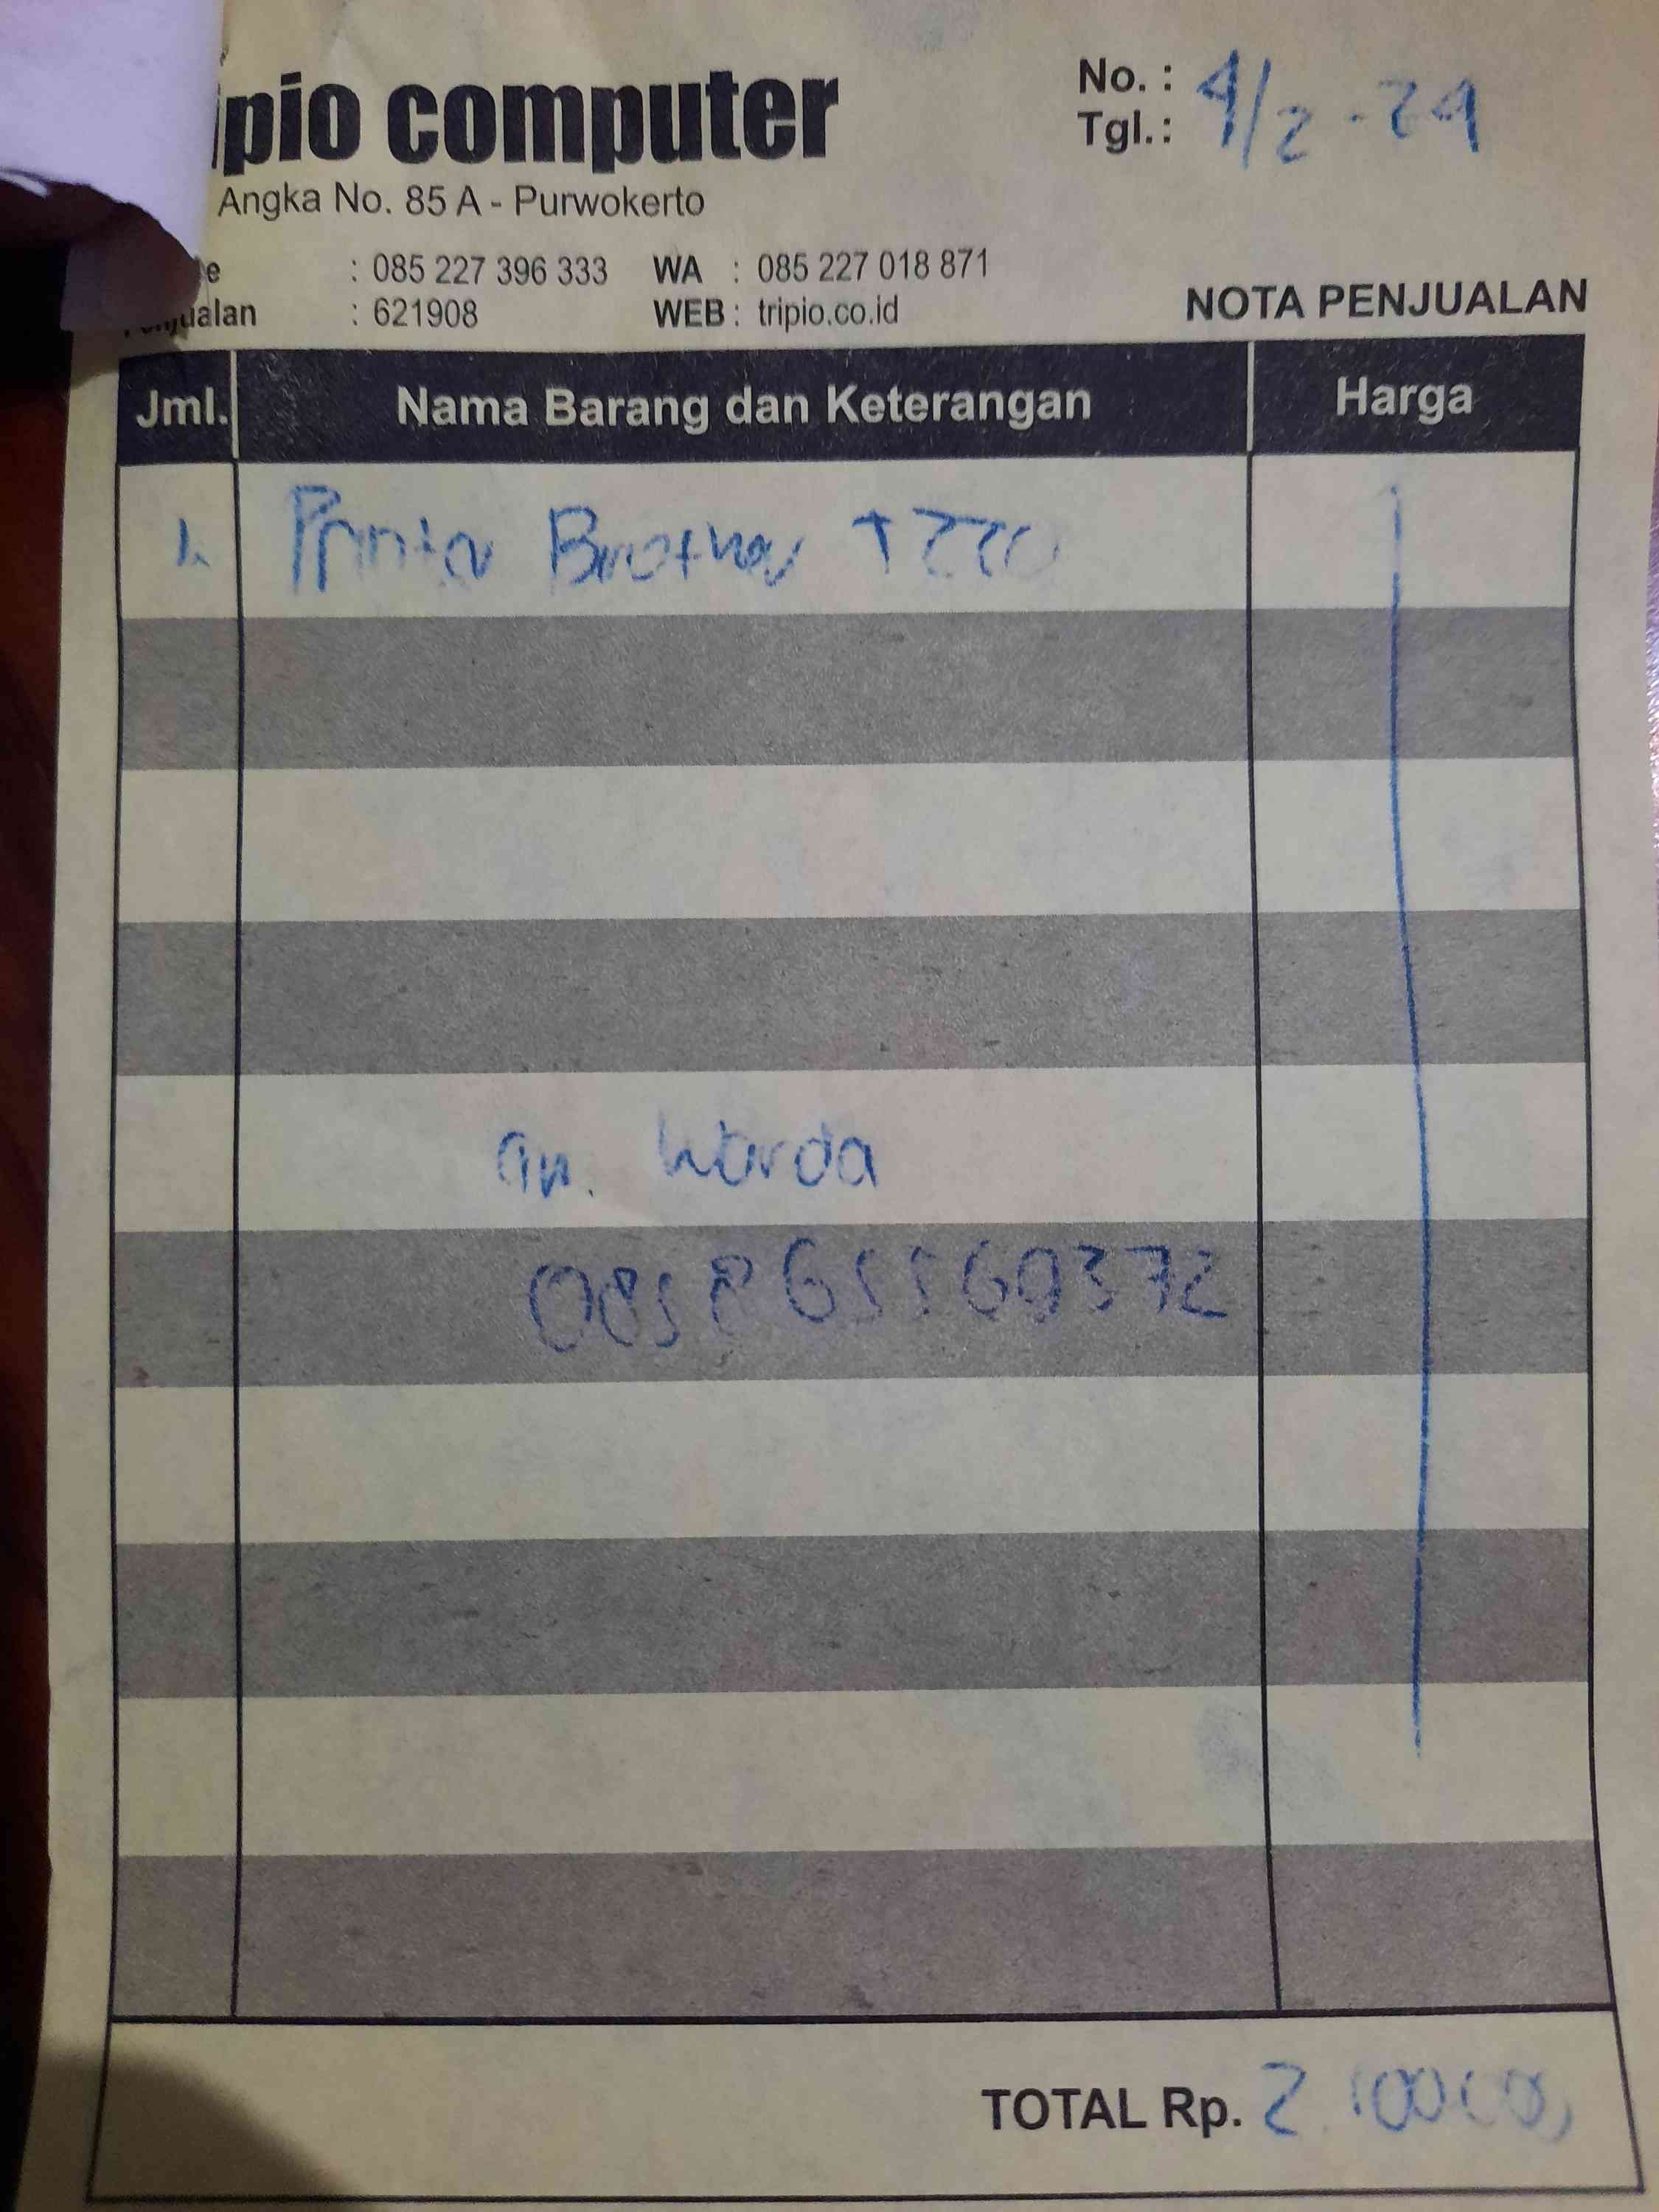 pio computer
No. :
Tgl. : 4/2 - 24
Angka No. 85 A - Purwokerto
: 085 227 396 333 WA : 085 227 018 871
: 621908 WEB : tripio.co.id
NOTA PENJUALAN
Jml. Nama Barang dan Keterangan Harga
1. Printer Brother T220
an. Warda
TOTAL Rp. 2.100.000,